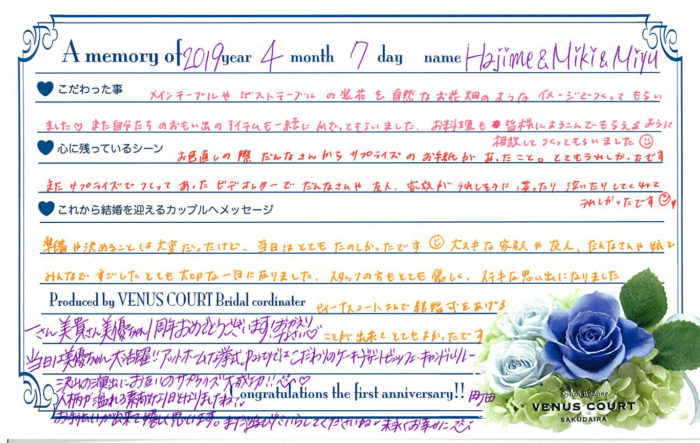 A memory of 2019 year 4 month 7 day name Hajime & Miki & Miyu
こだわった事
メインテーブルやゲストテーブルの装花を自然なお花畑のようなイメージでつくってもらい
ました♡ また自分たちのおもい出のアイテムも一緒に んでもらいました。お料理も 皆様によろこんでもらえるように
相談してつくってもらいました
心に残っているシーン
お色直しの際だんなさんからサプライズのお手紙があったこと。とてもうれしかったです
またサプライズでつくってあったビデオレターでだんなさんや友人、家族がうれしそうに笑ったり泣いたりしてくれて
うれしかったです
これから結婚を迎えるカップルへメッセージ
準備や決めることは大変だったけど、当日はとてもたのしかったです 大スキな家族や友人、だんなさんや娘と
みんなですごしたとても大切な一日になりました。スタッフの方もとても優しく、ステキな思い出になりました
Produced by VENUS COURT Bridal cordinater
ビィーナスコートさんで結婚式をあげる
ことが出来てとてもよかったです
一さん美貴さん美優ちゃん1周年おめでとうございます!おかえりなさい♡
当日は美優ちゃん大活躍!!アットホームな挙式、Partyではこだわりのケーキ、デザートビュッフェ・キャンドルリレー
沢山の演出にお互いのサプライズも大成功!!
ongratulations the first anniversary!!
人柄が溢れる素敵な1日となりましたね
お手伝いが出来て嬉しく思います。また遊びにいらしてくださいね 末永くお幸せに
VENUS COURT
SAKUDAIRA